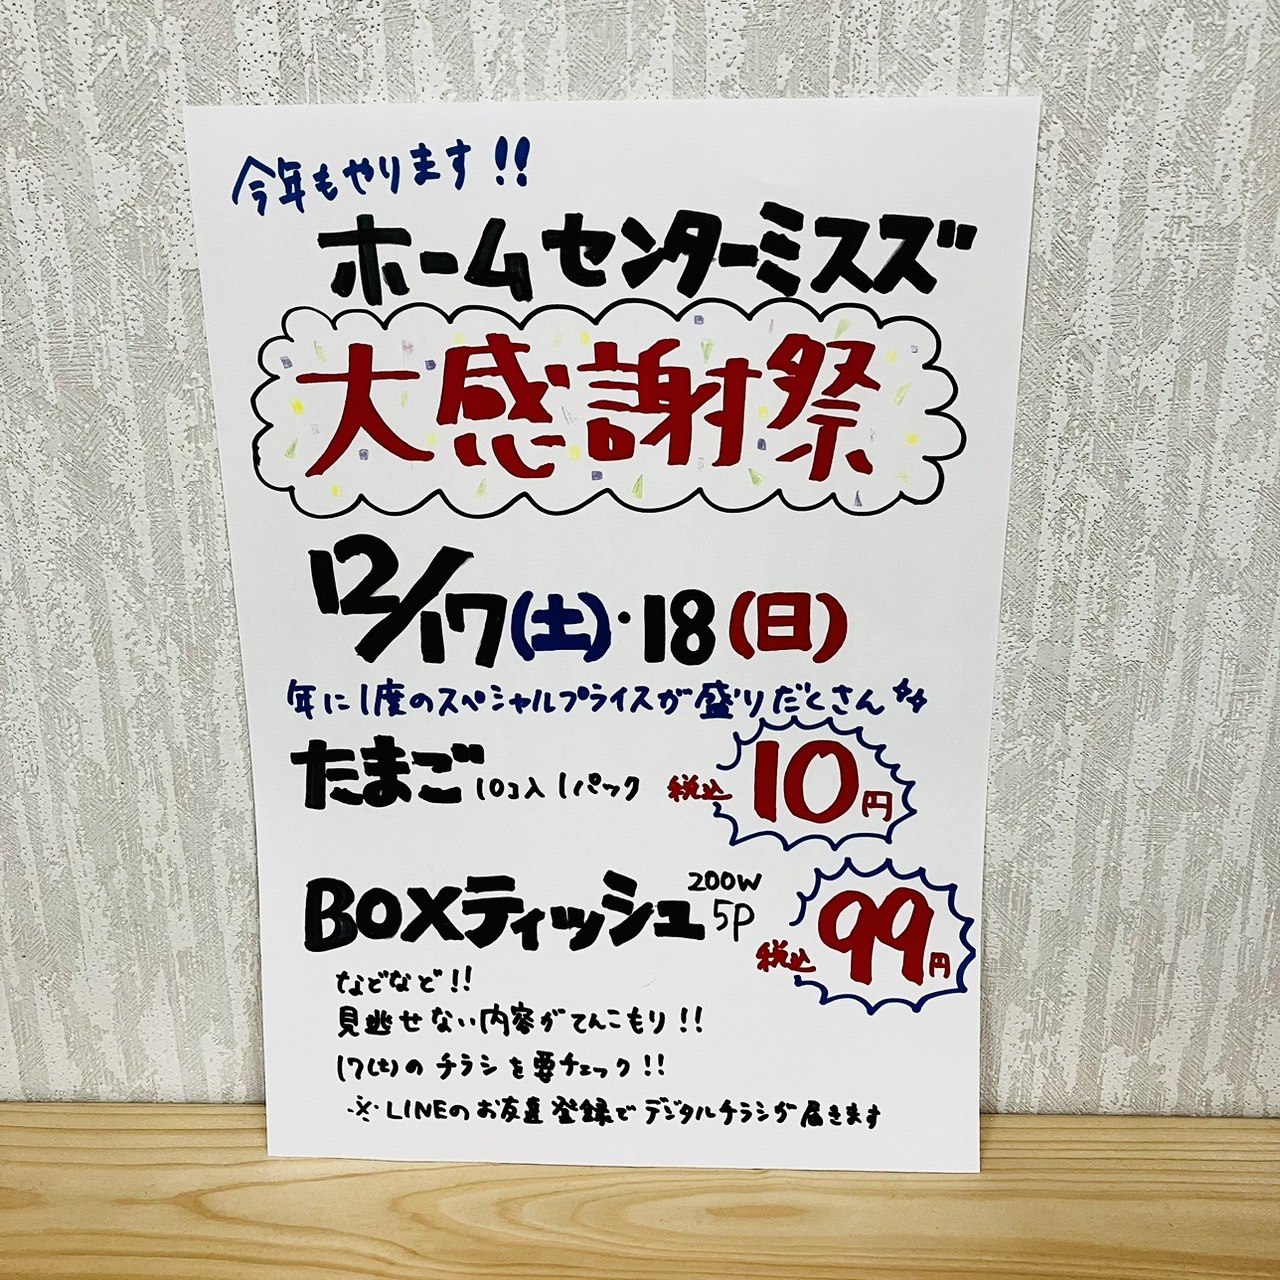 今年もやります!!
ホームセンターミスズ
大感謝祭
12/17(土)・18(日)
年に1度のスペシャルプライスが盛りだくさん
たまご 10コ入 1パック 税込 10円
BOXティッシュ 200W 5P 税込 99円
などなど!!
見逃せない内容がてんこもり!!
17(土)の チラシを要チェック!!
※LINEのお友達登録でデジタルチラシが届きます